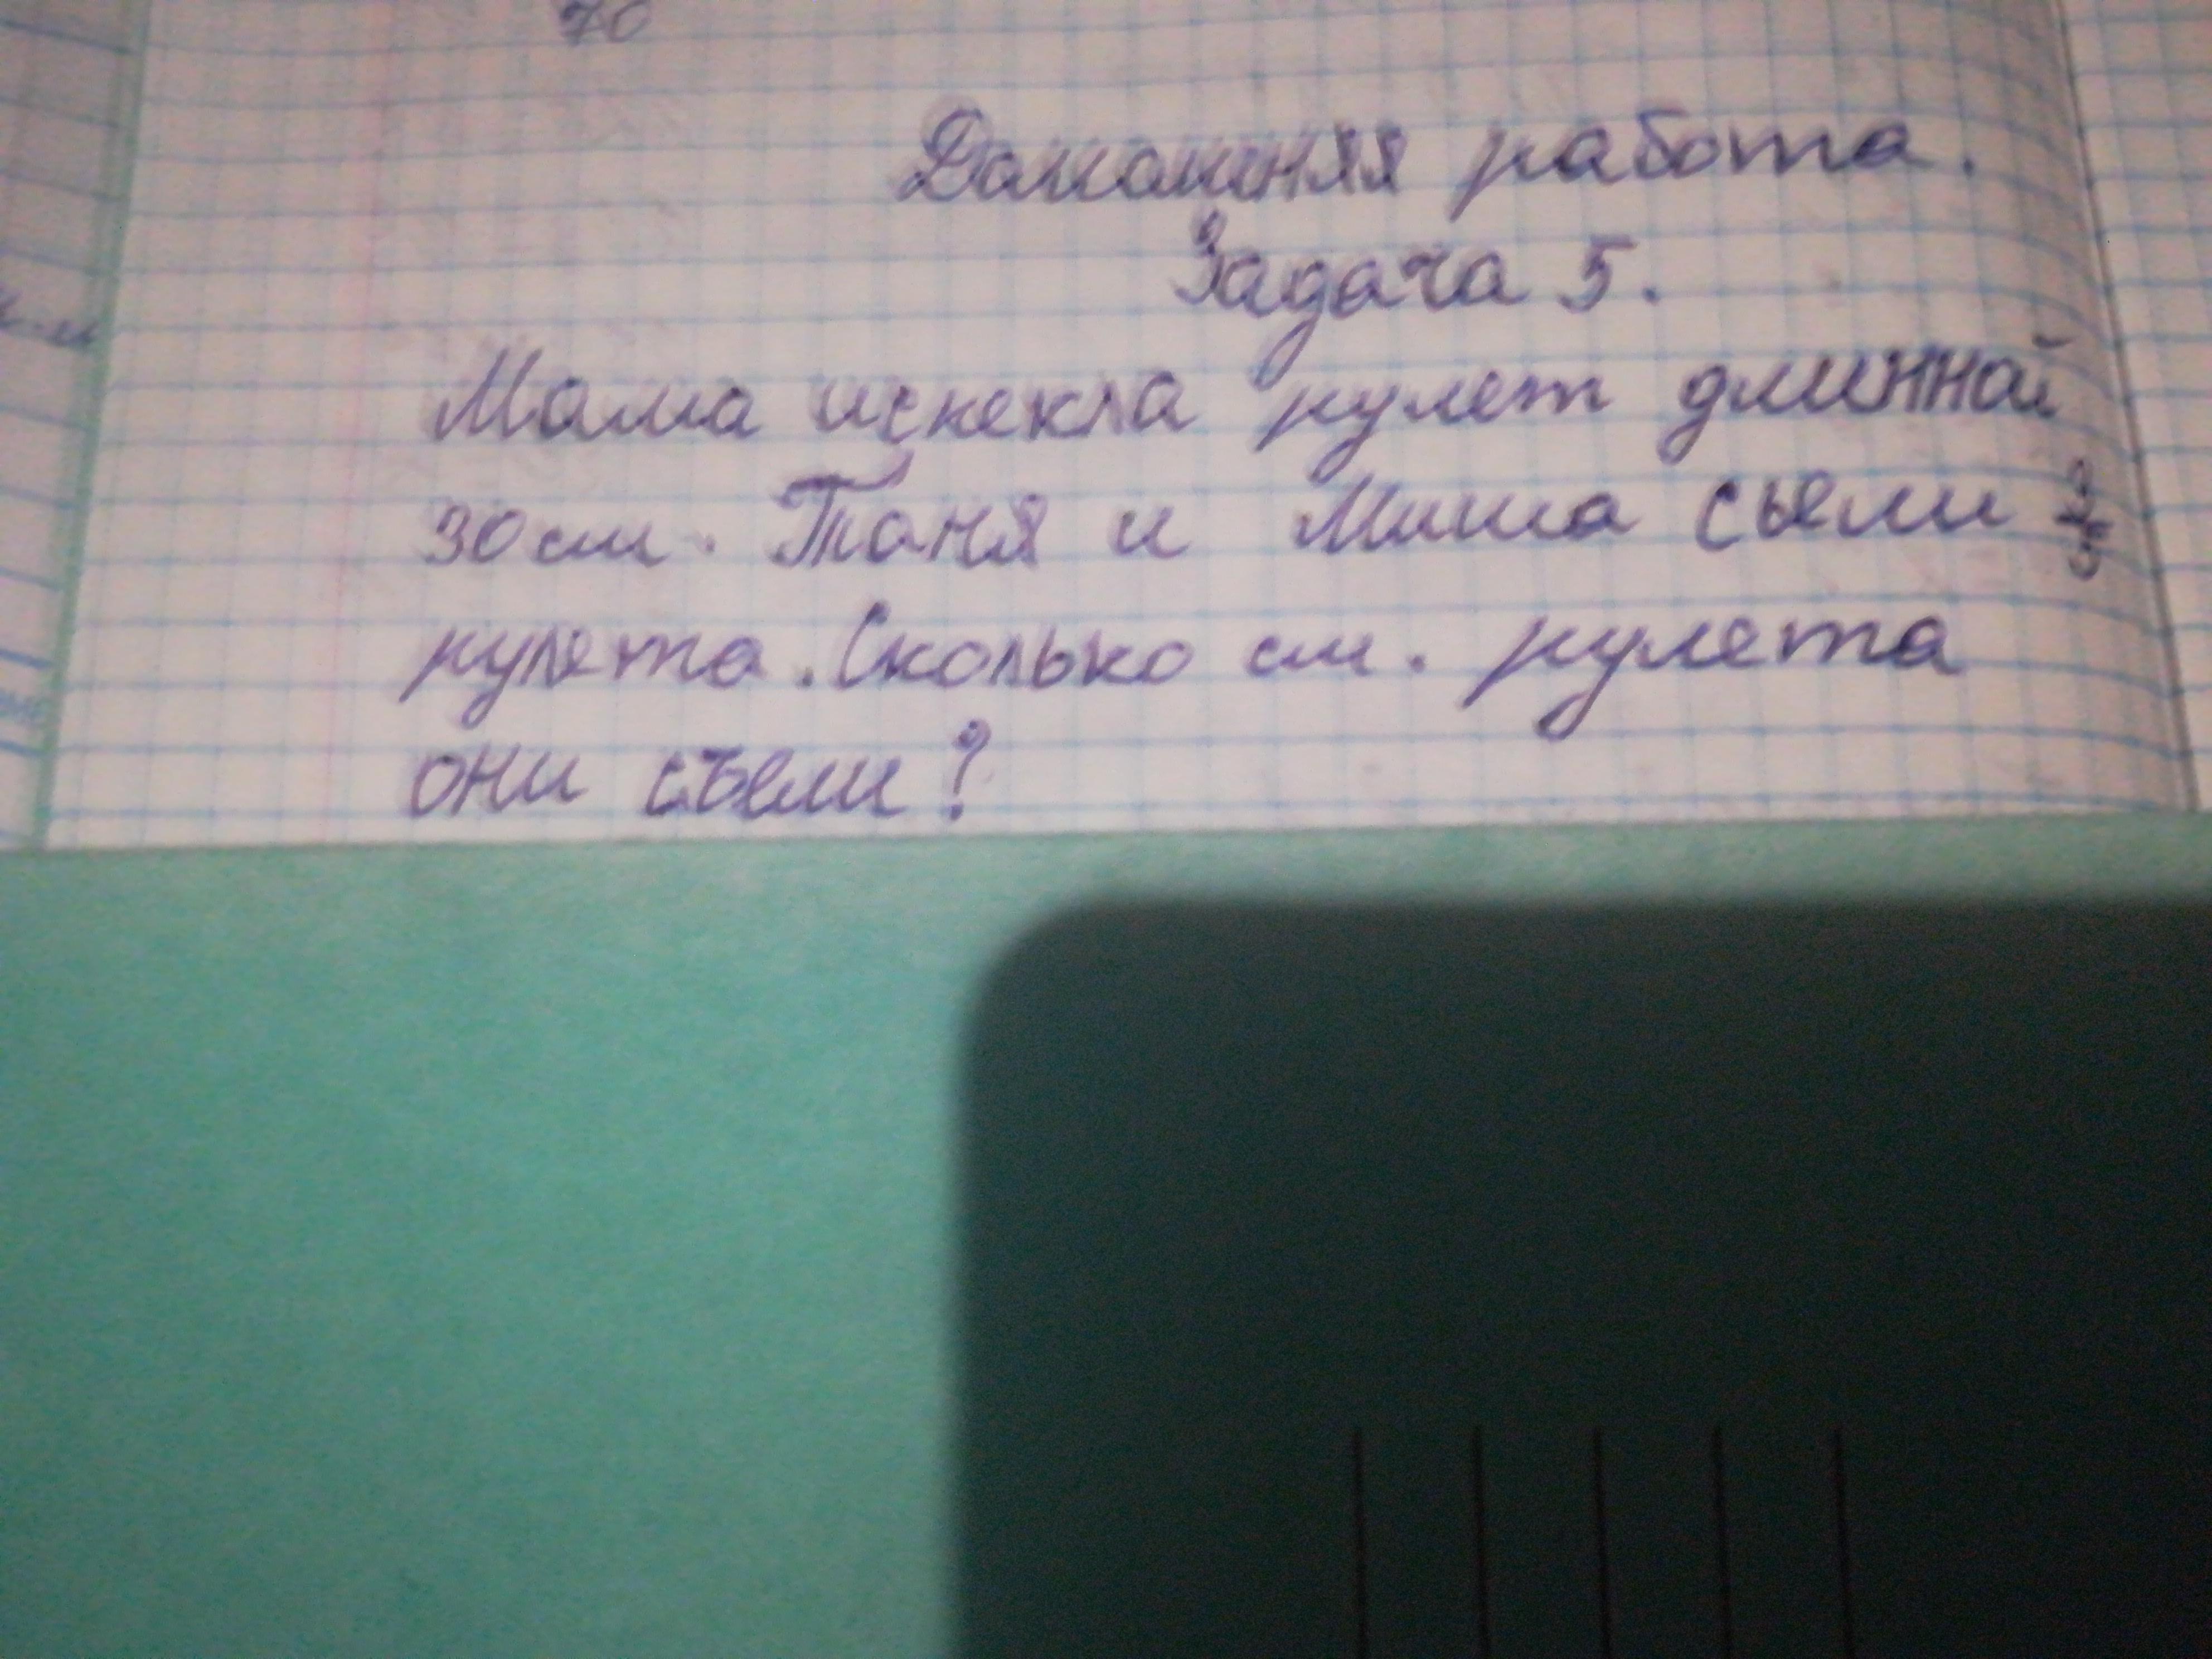 70
Домашняя работа.
Задача 5.
Мама испекла рулет длинной
30см. Таня и Миша съели
рулета. Сколько см. рулета
они съели?